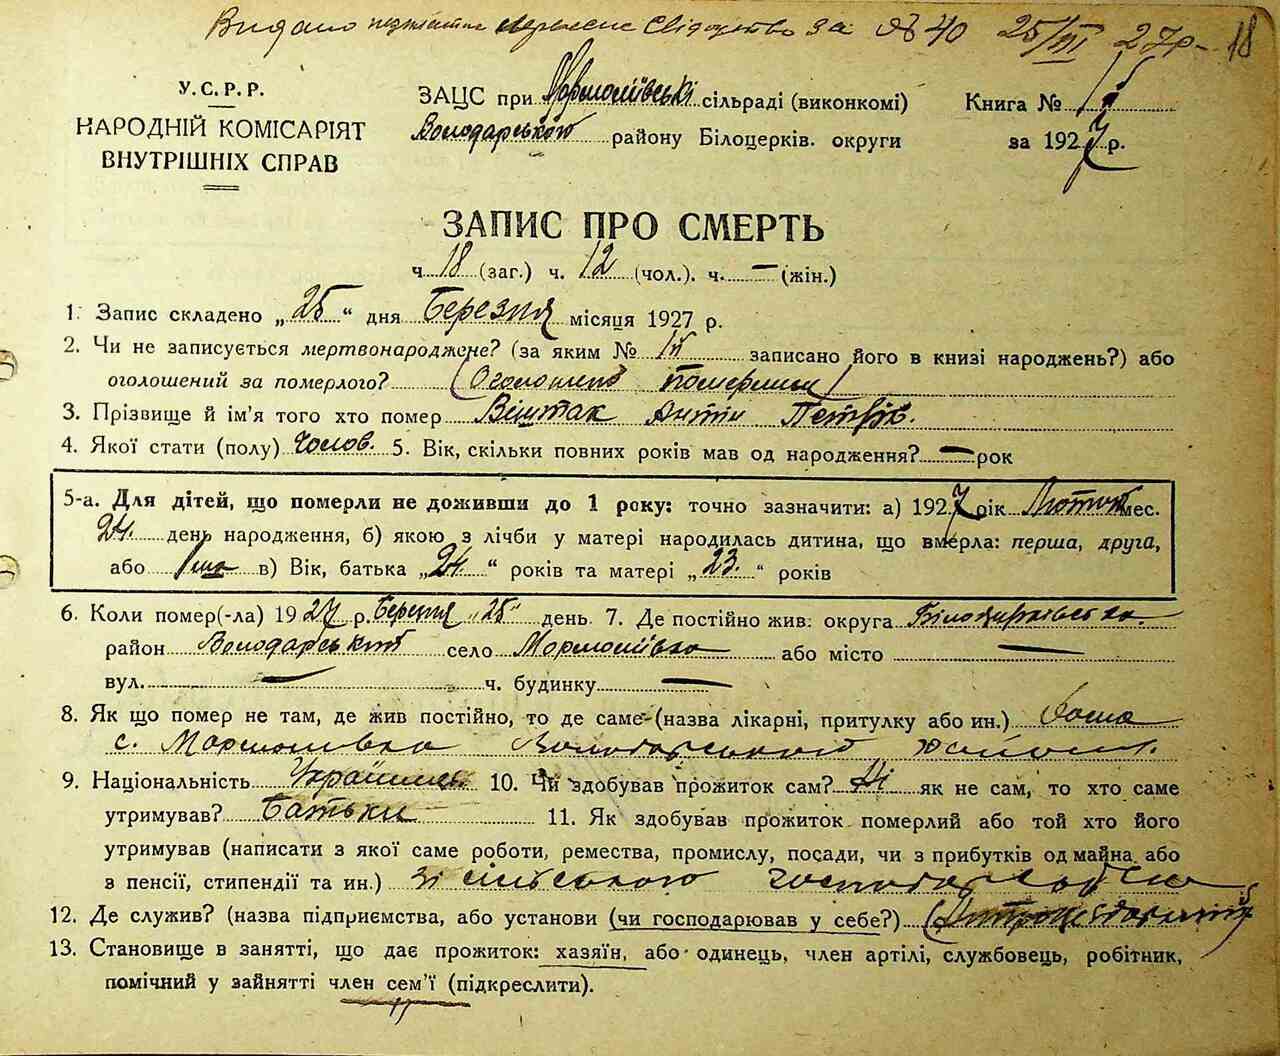 Видано свідоцтво за № 40 25/III 27р. 18
У.С.Р.Р.
НАРОДНІЙ КОМІСАРІЯТ
ВНУТРІШНІХ СПРАВ
ЗАЦС при сільраді (виконкомі)
Володарського району Білоцерків. округи
Книга №
за 1927 р.
ЗАПИС ПРО СМЕРТЬ
ч 18 (заг.) ч. 12 (чол.). ч. — (жін.)
1. Запис складено „25" дня Березня місяця 1927 р.
2. Чи не записується мертвонароджене? (за яким № записано його в книзі народжень?) або
оголошений за померлого?
3. Прізвище й ім'я того хто помер Віштак Антін Петрів.
4. Якої стати (полу) Чолов. 5. Вік, скільки повних років мав од народження? — рок
5-а. Для дітей, що померли не доживши до 1 року: точно зазначити: а) 1927 рік Лютий мес.
24. день народження, б) якою з лічби у матері народилась дитина, що вмерла: перша, друга,
або 1ша в) Вік, батька „24" років та матері „23" років
6. Коли помер(-ла) 1927 р. Березня „25" день 7. Де постійно жив: округа Білоцерківська
район Володарський село або місто —
вул. — ч. будинку —
8. Як що помер не там, де жив постійно, то де саме (назва лікарні, притулку або ин.) Вдома
с. Володарського району.
9. Національність 10. Чи здобував прожиток сам? Ні як не сам, то хто саме
утримував? Батьки 11. Як здобував прожиток померлий або той хто його
утримував (написати з якої саме роботи, ремества, промислу, посади, чи з прибутків од майна або
з пенсії, стипендії та ин.) зі сільського господарства
12. Де служив? (назва підприємства, або установи (чи господарював у себе?)
13. Становище в занятті, що дає прожиток: хазяїн, або одинець, член артілі, службовець, робітник,
помічний у зайнятті член сем'ї (підкреслити).